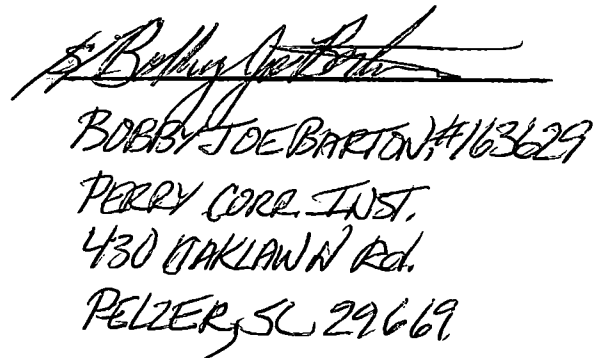 s/ Bobby Joe Barton
BOBBY JOE BARTON, #163629
PERRY CORR. INST.
430 OAKLAWN Rd.
PELZER, SC 29669.